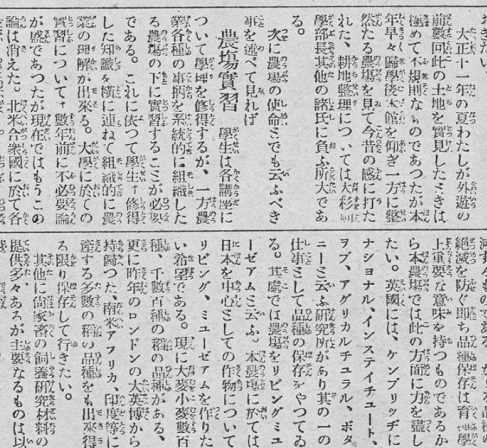 大正十一年の夏わたしが外遊の
前數回此の土地を實見したときは
極めて不規則なものであつたが本
年早々醫學後本館を仰ぎ一方に整
然たる農場を見て今昔の感に打た
れた、耕地整理については大杉明
學部長其他の諸氏に負ふ所大であ
る。
次に農場の使命とでも云ふべき
事を述べて見れば
農場實習 學生は各講座に
ついて學理を修得するが、一方農
業各種の事柄を系統的に組織した
る農場の下に實習することが必要
である。これに依つて學生は修得
した知識を横に連ねて組織的に農
業の理解が出來る。大學に於ての
實習について十數年前に不必要論
が盛であつたが現在ではもうこの
論は消えた。北米合衆國に於て各
滅するものである
絶滅を防ぐ即ち品種保存は育
上重要な意味を持つものであるか
ら本農場では此の方面に力を盡し
たい。英國には、ケンブリッヂに
ナショナル、インスティチュート、
ヲブ、アグリカルチュラル、ボタ
ニーと云ふ研究所があり其の一の
仕事として品種の保存をやつてゐ
る。其處では農場をリビングミユ
ーゼアムと云ふ。本農場に於ては
日本を中心としての作物について
リビング、ミユーゼアムを作りた
い希望である。現に大麥小麥數百
種、千數百種の稻の品種がある、
更に昨年のロンドンの大英博から
持歸つた、南米、アフリカ、印度等に
産する多數の稻の品種をも出來得
る限り保存して行きたい。
其他に尙家畜の飼養研究材料の
提供多々あるが主要なるものは以